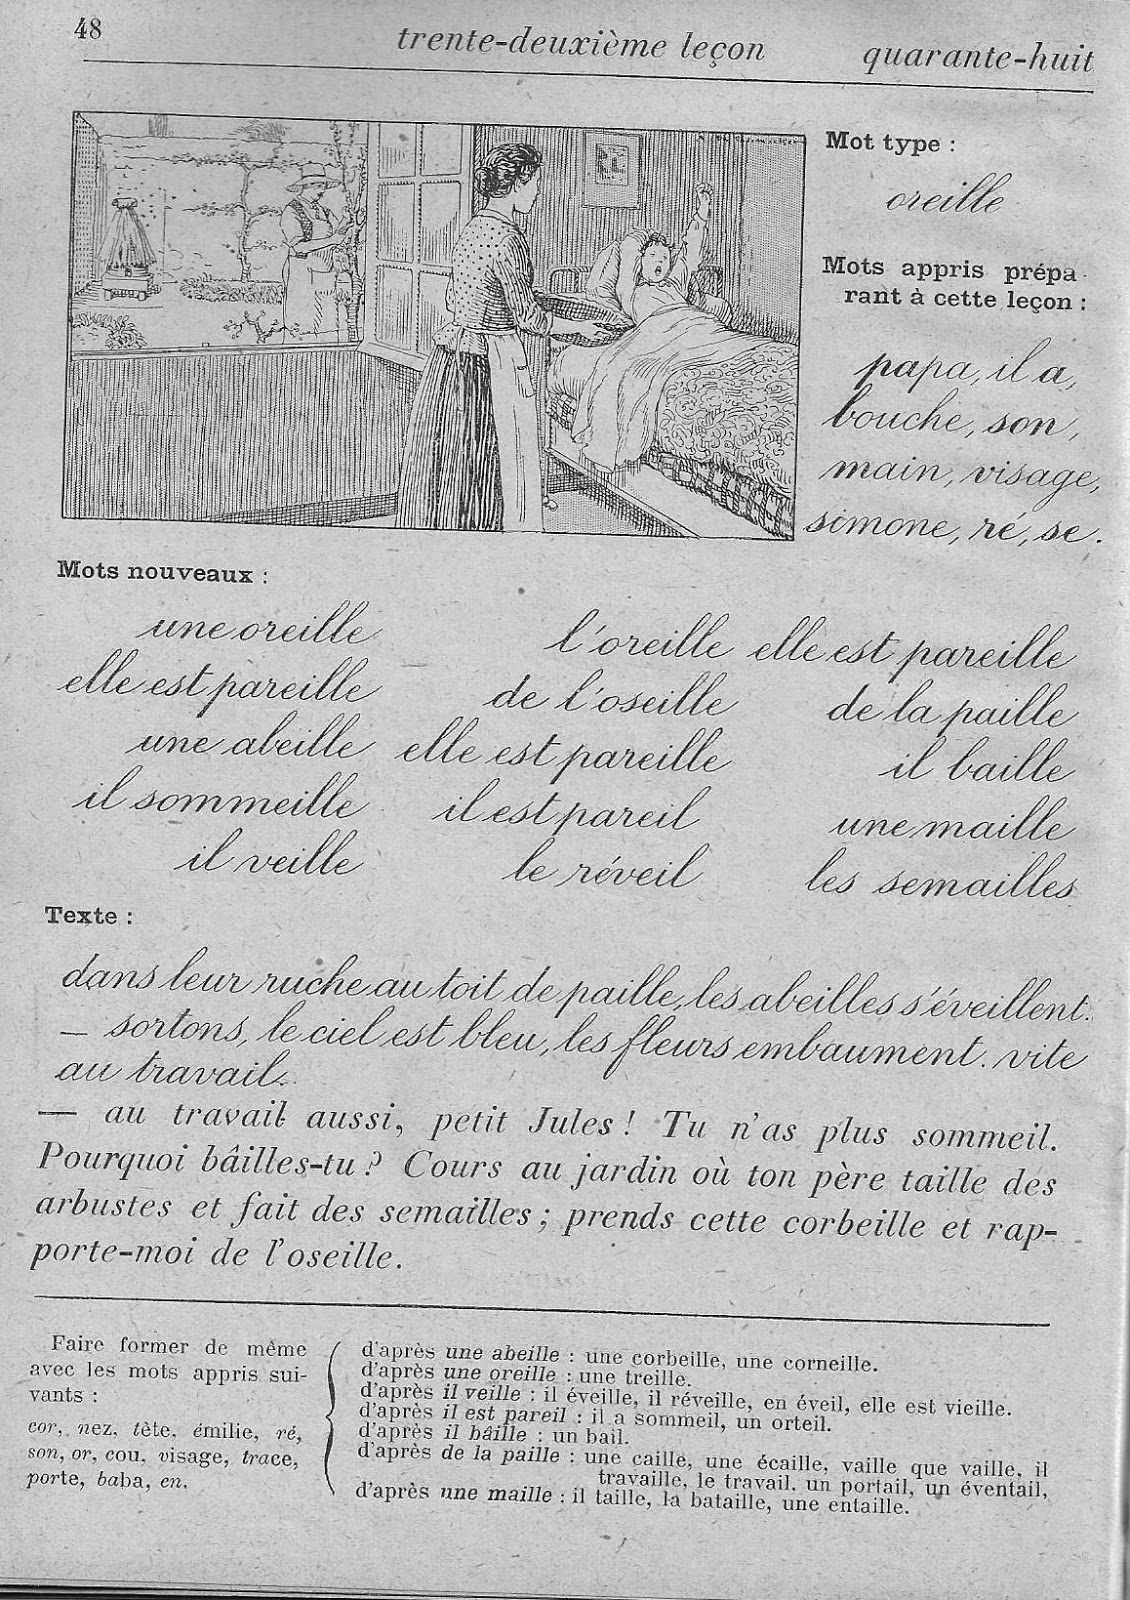 48 trente-deuxième leçon quarante-huit
Mot type :
oreille
Mots appris prépa-
rant à cette leçon :
papa, il a,
bouche, son,
main, visage,
simone, ré, se.
Mots nouveaux :
une oreille l'oreille elle est pareille
elle est pareille de l'oseille de la paille
une abeille elle est pareille il baille
il sommeille il est pareil une maille
il veille le réveil les semailles
Texte :
dans leur ruche au toit de paille, les abeilles s'éveillent.
— sortons, le ciel est bleu, les fleurs embaument. vite
au travail.
— au travail aussi, petit Jules ! Tu n'as plus sommeil.
Pourquoi bâilles-tu ? Cours au jardin où ton père taille des
arbustes et fait des semailles ; prends cette corbeille et rap-
porte-moi de l'oseille.
Faire former de même
avec les mots appris sui-
vants :
cor, nez, tête, émilie, ré,
son, or, cou, visage, trace,
porte, baba, en.
d'après une abeille : une corbeille, une corneille.
d'après une oreille : une treille.
d'après il veille : il éveille, il réveille, en éveil, elle est vieille.
d'après il est pareil : il a sommeil, un orteil.
d'après il bâille : un bail.
d'après de la paille : une caille, une écaille, vaille que vaille, il
travaille, le travail, un portail, un éventail,
d'après une maille : il taille, la bataille, une entaille.